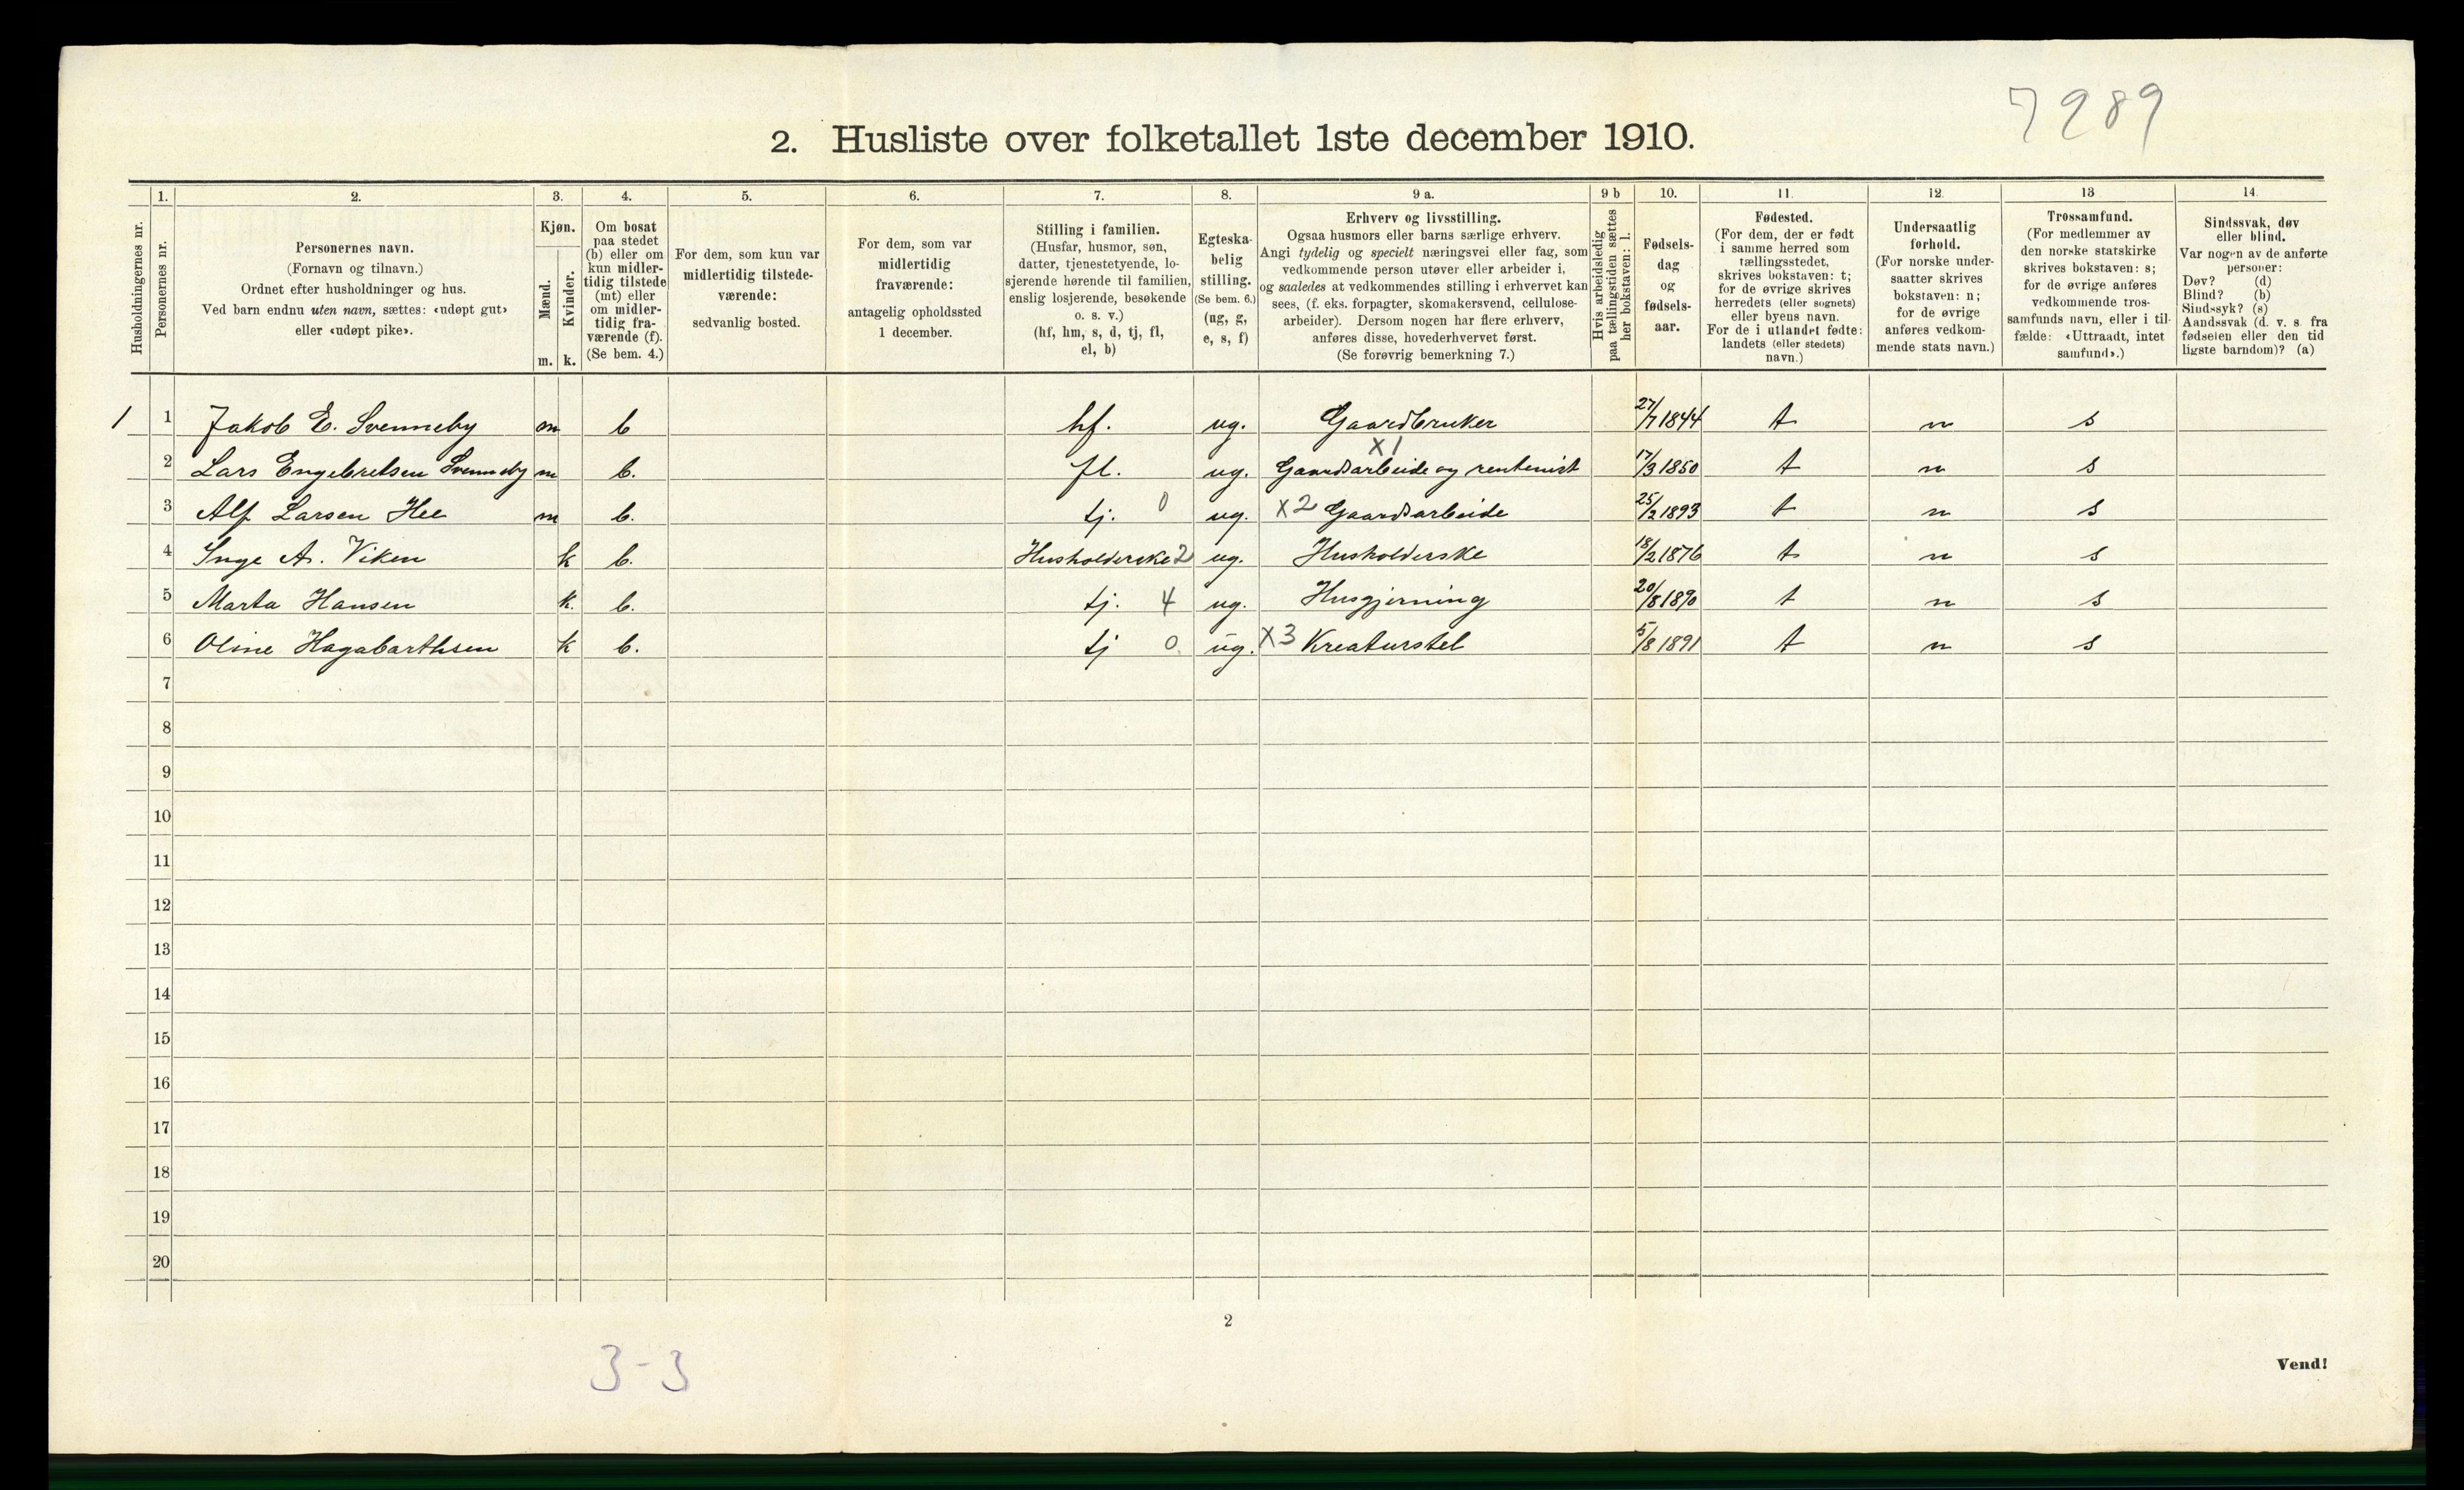 7989
2. Husliste over folketallet 1ste december 1910.
Husholdningernes nr.
1.
Personernes nr.
2.
Personernes navn.
(Fornavn og tilnavn.)
Ordnet efter husholdninger og hus.
Ved barn endnu uten navn, sættes: «udøpt gut»
eller «udøpt pike».
3.
Kjøn.
Mænd.
Kvinder.
m. k.
4.
Om bosat
paa stedet
(b) eller om
kun midler-
tidig tilstede
(mt) eller
om midler-
tidig fra-
værende (f).
(Se bem. 4.)
5.
For dem, som kun var
midlertidig tilstede-
værende:
sedvanlig bosted.
6.
For dem, som var
midlertidig
fraværende:
antagelig opholdssted
1 december.
7.
Stilling i familien.
(Husfar, husmor, søn,
datter, tjenestetyende, lo-
sjerende hørende til familien,
enslig losjerende, besøkende
o. s. v.)
(hf, hm, s, d, tj, fl,
el, b)
8.
Egteska-
belig
stilling.
(Se bem. 6.)
(ug, g,
e, s, f)
9 a.
Erhverv og livsstilling.
Ogsaa husmors eller barns særlige erhverv.
Angi tydelig og specielt næringsvei eller fag, som
vedkommende person utøver eller arbeider i,
og saaledes at vedkommendes stilling i erhvervet kan
sees, (f. eks. forpagter, skomakersvend, cellulose-
arbeider). Dersom nogen har flere erhverv,
anføres disse, hovederhvervet først.
(Se forøvrig bemerkning 7.)
9 b
Hvis arbeidsledig
paa tællingstiden sættes
her bokstaven: l.
10.
Fødsels-
dag
og
fødsels-
aar.
11.
Fødested.
(For dem, der er født
i samme herred som
tællingsstedet,
skrives bokstaven: t;
for de øvrige skrives
herredets (eller sognets)
eller byens navn.
For de i utlandet fødte:
landets (eller stedets)
navn.)
12.
Undersaatlig
forhold.
(For norske under-
saatter skrives
bokstaven: n;
for de øvrige
anføres vedkom-
mende stats navn.)
13
Trossamfund.
(For medlemmer av
den norske statskirke
skrives bokstaven: s;
for de øvrige anføres
vedkommende tros-
samfunds navn, eller i til-
fælde: «Uttraadt, intet
samfund».)
14.
Sindssvak, døv
eller blind.
Var nogen av de anførte
personer:
Døv? (d)
Blind? (b)
Sindssyk? (s)
Aandssvak (d. v. s. fra
fødselen eller den tid
ligste barndom)? (a)
1 1 Jakob E. Svenneby m b hf. ug. Gaardbruker 27/7 1844 t n s
X1
2 Lars Engebretsen Svenneby m b. fl. ug. Gaardsarbeide og rentenist 17/3 1850 t n s
3 Alf Larsen Hee m b. tj. 0 ug. X2 Gaardsarbeide 25/2 1893 t n s
4 Inge A. Viken k b. Husholderske 2 ug. Husholderske 18/2 1876 t n s
5 Marta Hansen k. b. tj. 4 ug. Husgjerning 20/8 1890 t n s
6 Oline Hagabarthsen k b. tj 0 ug. X3 Kreaturstel 5/8 1891 t n s
7
8
9
10
11
12
13
14
15
16
17
18
19
20
2
3-3
Vend!